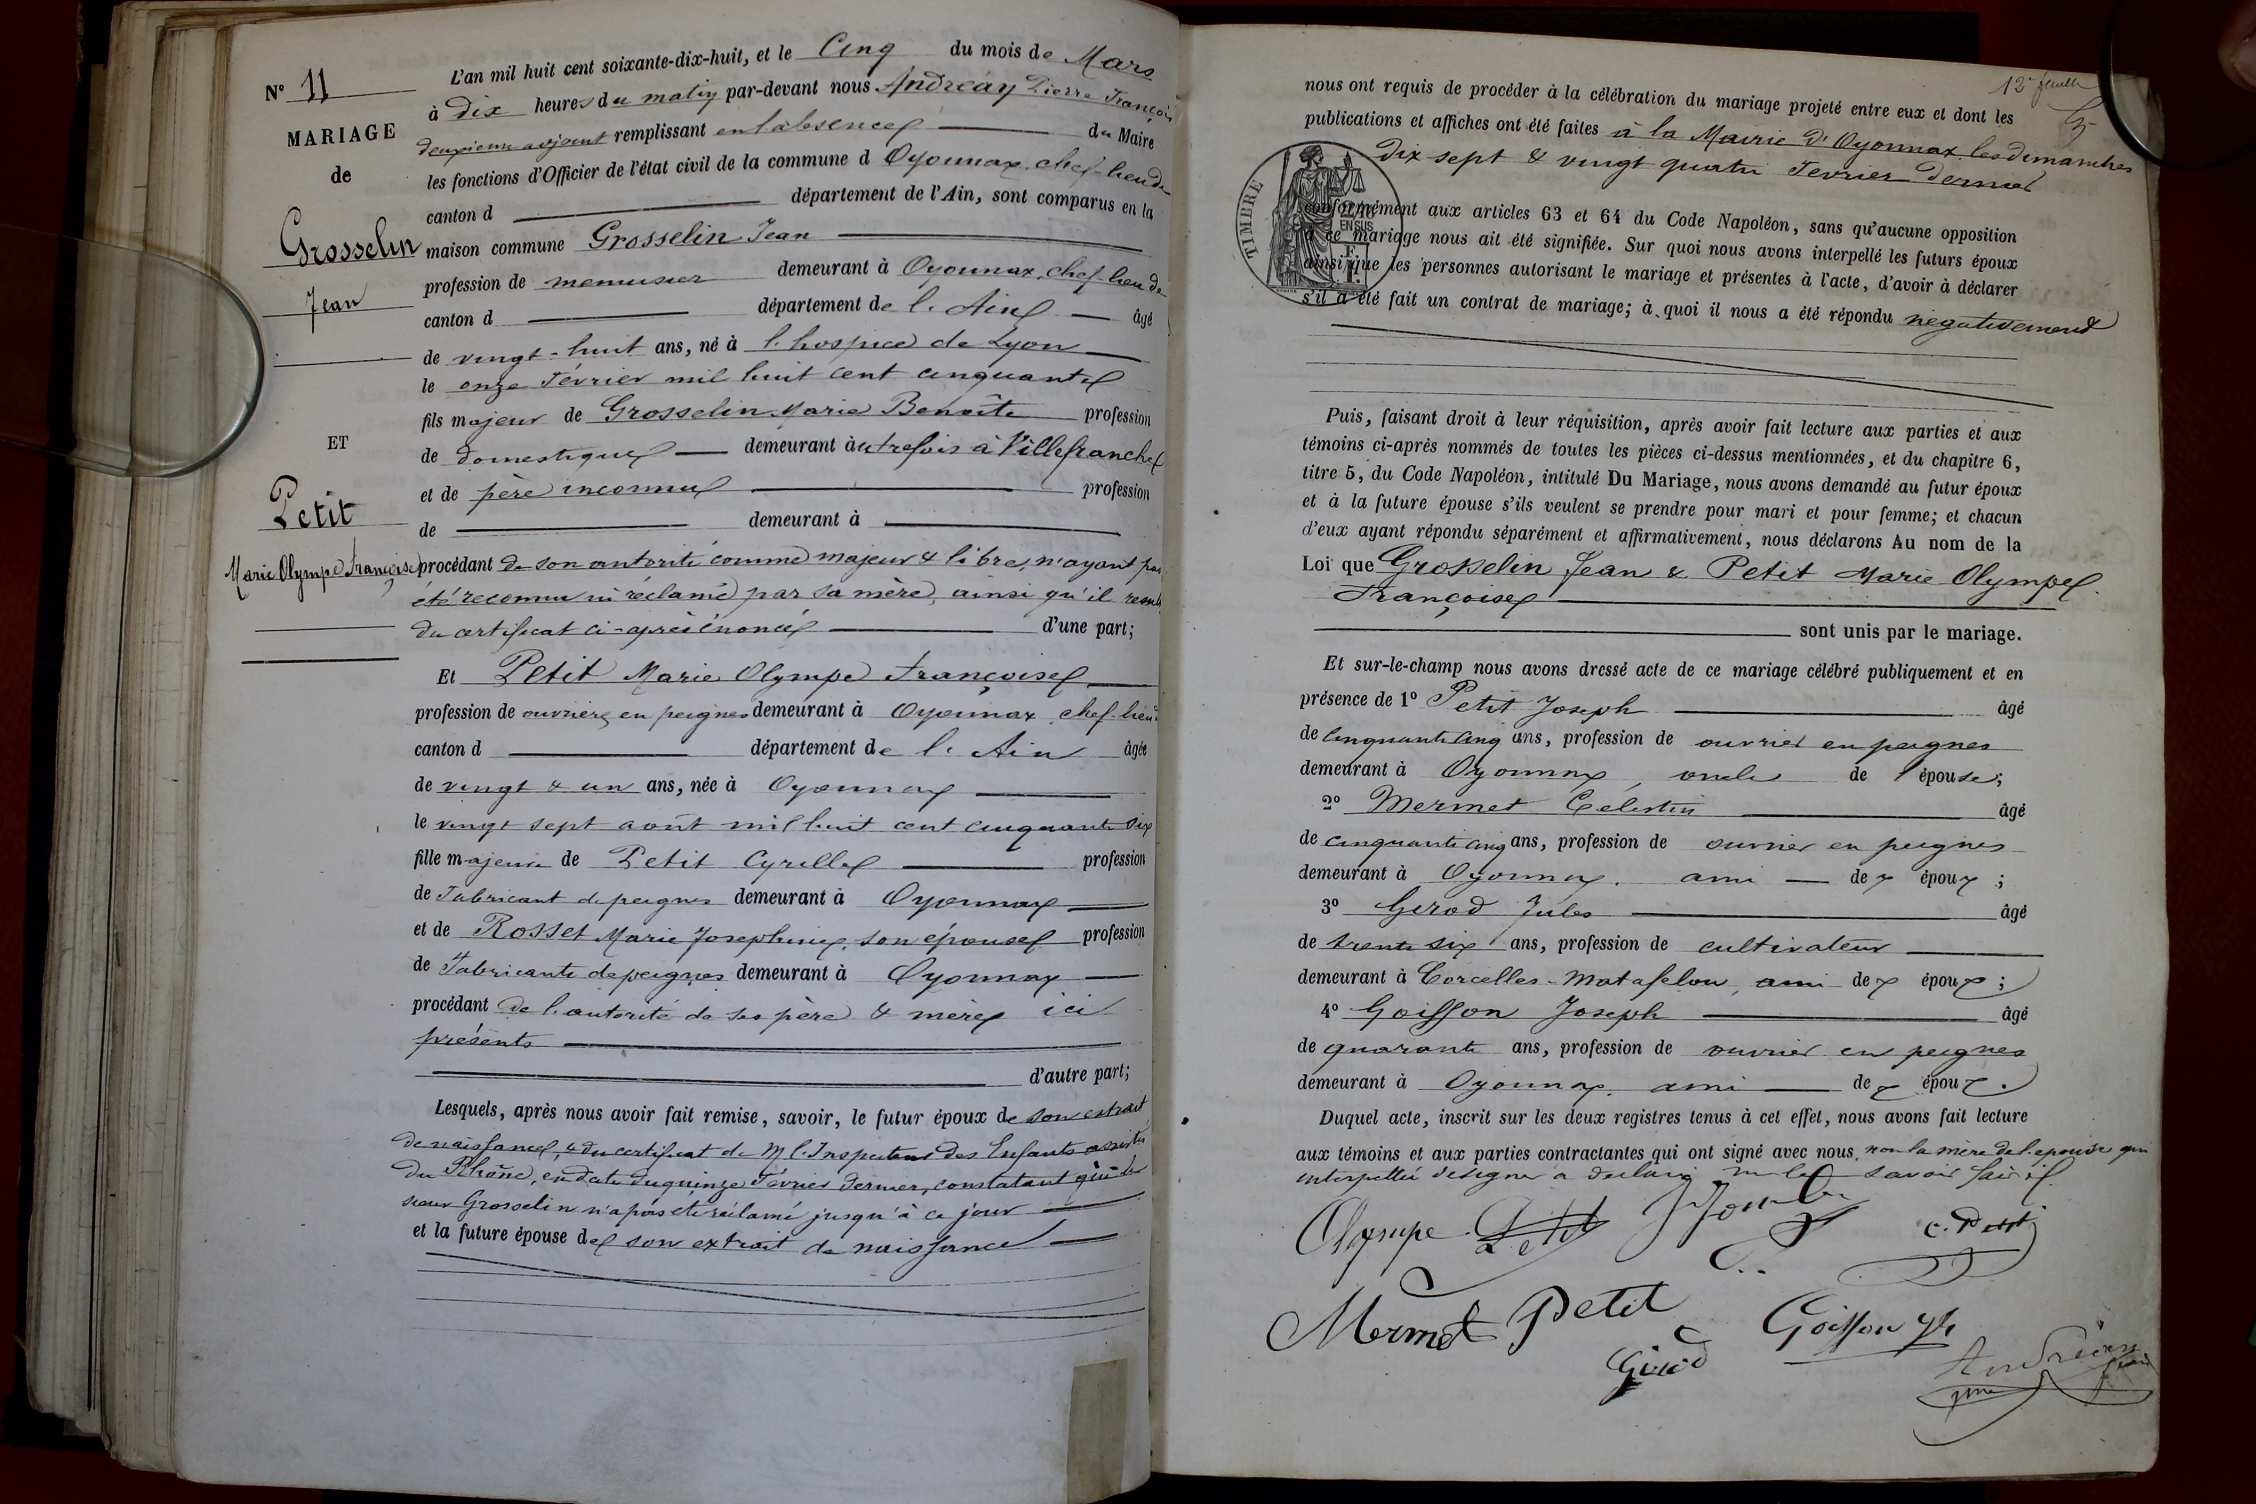 N° 11
MARIAGE
de
Grosselin
Jean
ET
Petit
Marie Olympe Françoise
L'an mil huit cent soixante-dix-huit, et le Cinq du mois de Mars
à dix heures du matin par-devant nous Andréäy Pierre François
deuxième adjoint remplissant en l'absence du Maire
les fonctions d'Officier de l'état civil de la commune d Oyonnax, chef-lieu de
canton d département de l'Ain, sont comparus en la
maison commune Grosselin Jean
profession de menuisier demeurant à Oyonnax, chef-lieu de
canton d département de l'Ain âgé
de vingt-huit ans, né à l'hospice de Lyon
le onze Février mil huit cent cinquante
fils majeur de Grosselin Marie Benoîte profession
de domestique demeurant àutrefois à Villefranche
et de père inconnu profession
de demeurant à
procédant de son autorité comme majeur & libre, n'ayant pas
été reconnu ni réclamé par sa mère, ainsi qu'il résulte
du certificat ci-après énoncé d'une part;
Et Petit Marie Olympe Françoise
profession de ouvrière en peignes demeurant à Oyonnax, chef-lieu
canton d département de l'Ain âgée
de vingt & un ans, née à Oyonnax
le vingt sept août mil huit cent cinquante six
fille majeure de Petit Cyrille profession
de Fabricant de peignes demeurant à Oyonnax
et de Rosset Marie Josephine, son épouse profession
de Fabricante de peignes demeurant à Oyonnax
procédant de l'autorité de ses père & mère ici
présents
d'autre part;
Lesquels, après nous avoir fait remise, savoir, le futur époux de son extrait
de naissance, & du certificat de M l'Inspecteur des Enfants assistés
du Rhône, en date du quinze Février dernier, constatant que le
sieur Grosselin n'a pas été réclamé jusqu'à ce jour
et la future épouse de son extrait de naissance
12e feuille
nous ont requis de procéder à la célébration du mariage projeté entre eux et dont les
publications et affiches ont été faites à la Mairie d'Oyonnax les dimanches
dix sept & vingt quatre Fevrier dernier
TIMBRE
EN SUS
conformément aux articles 63 et 64 du Code Napoléon, sans qu'aucune opposition
à ce mariage nous ait été signifiée. Sur quoi nous avons interpellé les futurs époux
ainsi que les personnes autorisant le mariage et présentes à l'acte, d'avoir à déclarer
s'il a été fait un contrat de mariage; à quoi il nous a été répondu négativement
Puis, faisant droit à leur réquisition, après avoir fait lecture aux parties et aux
témoins ci-après nommés de toutes les pièces ci-dessus mentionnées, et du chapitre 6,
titre 5, du Code Napoléon, intitulé Du Mariage, nous avons demandé au futur époux
et à la future épouse s'ils veulent se prendre pour mari et pour femme; et chacun
d'eux ayant répondu séparément et affirmativement, nous déclarons Au nom de la
Loi que Grosselin Jean & Petit Marie Olympe
Françoise
sont unis par le mariage.
Et sur-le-champ nous avons dressé acte de ce mariage célébré publiquement et en
présence de 1° Petit Joseph âgé
de cinquante cinq ans, profession de ouvrier en peignes
demeurant à Oyonnax, oncle de l'épouse;
2° Mermet Célestin âgé
de cinquante cinq ans, profession de ouvrier en peignes
demeurant à Oyonnax. ami des époux;
3° Girod Jules âgé
de trente six ans, profession de cultivateur
demeurant à Corcelles-Matafelon, ami des époux;
4° Goiffon Joseph âgé
de quarante ans, profession de ouvrier en peignes
demeurant à Oyonnax. ami des époux.
Duquel acte, inscrit sur les deux registres tenus à cet effet, nous avons fait lecture
aux témoins et aux parties contractantes qui ont signé avec nous, non la mère de l'épouse qui
interpellée de signer a déclaré ne le savoir faire
Olympe Petit
C. Petit
Mermet Petit Goiffon
Girod
Andréäy